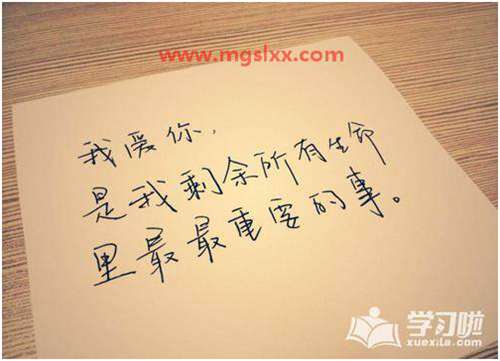 www.mgslxx.com
我爱你,
是我剩余所有生命
里最最重要的事。
学习啦
xuexila.com